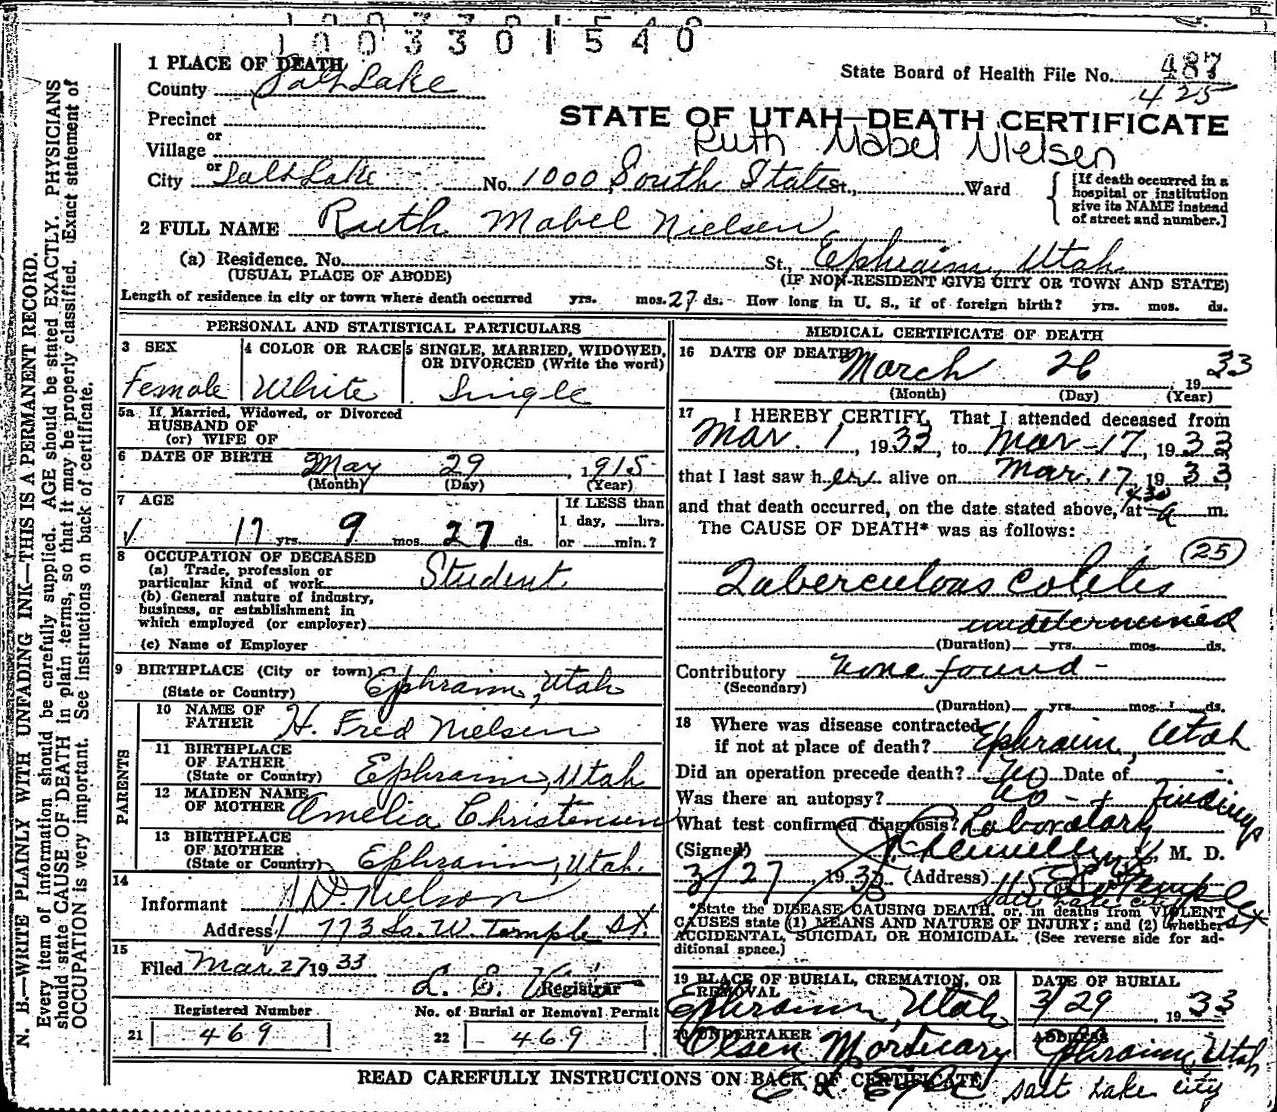 1003301540
1 PLACE OF DEATH
County Salt Lake
State Board of Health File No. 487
425
Precinct
or
Village
or
STATE OF UTAH—DEATH CERTIFICATE
Ruth Mabel Nielsen
City Salt Lake No. 1000 South State St., Ward
[If death occurred in a hospital or institution give its NAME instead of street and number.]
2 FULL NAME Ruth Mabel Nielsen
(a) Residence. No. St. Ephraim, Utah
(USUAL PLACE OF ABODE) (IF NON-RESIDENT GIVE CITY OR TOWN AND STATE)
Length of residence in city or town where death occurred yrs. mos. 27 ds. How long in U. S., if of foreign birth? yrs. mos. ds.
PERSONAL AND STATISTICAL PARTICULARS
3 SEX
Female
4 COLOR OR RACE
White
5 SINGLE, MARRIED, WIDOWED, OR DIVORCED (Write the word)
Single
5a If Married, Widowed, or Divorced
HUSBAND OF
(or) WIFE OF
6 DATE OF BIRTH May 29, 1915
(Month) (Day) (Year)
7 AGE
17 yrs. 9 mos. 27 ds.
If LESS than
1 day, hrs.
or min.?
8 OCCUPATION OF DECEASED
(a) Trade, profession or
particular kind of work Student
(b) General nature of industry,
business, or establishment in
which employed (or employer)
(c) Name of Employer
9 BIRTHPLACE (City or town) Ephraim, Utah
(State or Country)
PARENTS
10 NAME OF
FATHER H. Fred Nielsen
11 BIRTHPLACE
OF FATHER
(State or Country) Ephraim, Utah
12 MAIDEN NAME
OF MOTHER Amelia Christensen
13 BIRTHPLACE
OF MOTHER
(State or Country) Ephraim, Utah.
14
Informant Nielson
Address 773 So. W. Temple St
15
Filed Mar. 27 1933
Registrar
Registered Number
21 469
No. of Burial or Removal Permit
22 469
MEDICAL CERTIFICATE OF DEATH
16 DATE OF DEATH March 26, 1933
(Month) (Day) (Year)
17 I HEREBY CERTIFY, That I attended deceased from
Mar. 1, 1933, to Mar-17, 1933
that I last saw her alive on Mar. 17, 1933
and that death occurred, on the date stated above, at 430 a m.
The CAUSE OF DEATH* was as follows:
25
Tuberculous Colitis
undetermined
(Duration) yrs. mos. ds.
Contributory None found -
(Secondary)
(Duration) yrs. mos. ds.
18 Where was disease contracted
if not at place of death? Ephraim, Utah
Did an operation precede death? No Date of
Was there an autopsy? No - + findings
What test confirmed diagnosis? Laboratory
(Signed) M. D.
3/27 1933 (Address) Temple St
Salt Lake City
*State the DISEASE CAUSING DEATH, or, in deaths from VIOLENT
CAUSES state (1) MEANS AND NATURE OF INJURY; and (2) whether
ACCIDENTAL, SUICIDAL OR HOMICIDAL. (See reverse side for ad-
ditional space.)
19 PLACE OF BURIAL, CREMATION, OR
REMOVAL
Ephraim, Utah
DATE OF BURIAL
3/29, 1933
20 UNDERTAKER
Olsen Mortuary
ADDRESS
Ephraim, Utah
READ CAREFULLY INSTRUCTIONS ON BACK OF CERTIFICATE
Salt Lake City
N. B.—WRITE PLAINLY WITH UNFADING INK—THIS IS A PERMANENT RECORD.
Every item of information should be carefully supplied. AGE should be stated EXACTLY. PHYSICIANS
should state CAUSE OF DEATH in plain terms, so that it may be properly classified. Exact statement of
OCCUPATION is very important. See instructions on back of certificate.